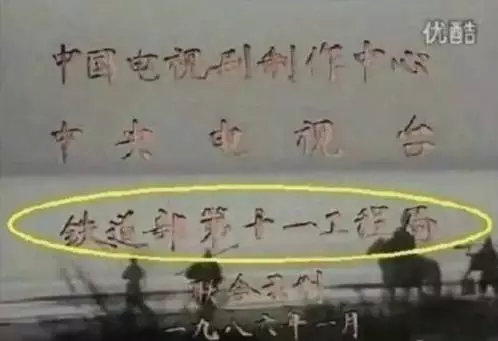 优酷
中国电视剧制作中心
中央电视台
铁道部第十一工程局
联合录制
一九八六年一月